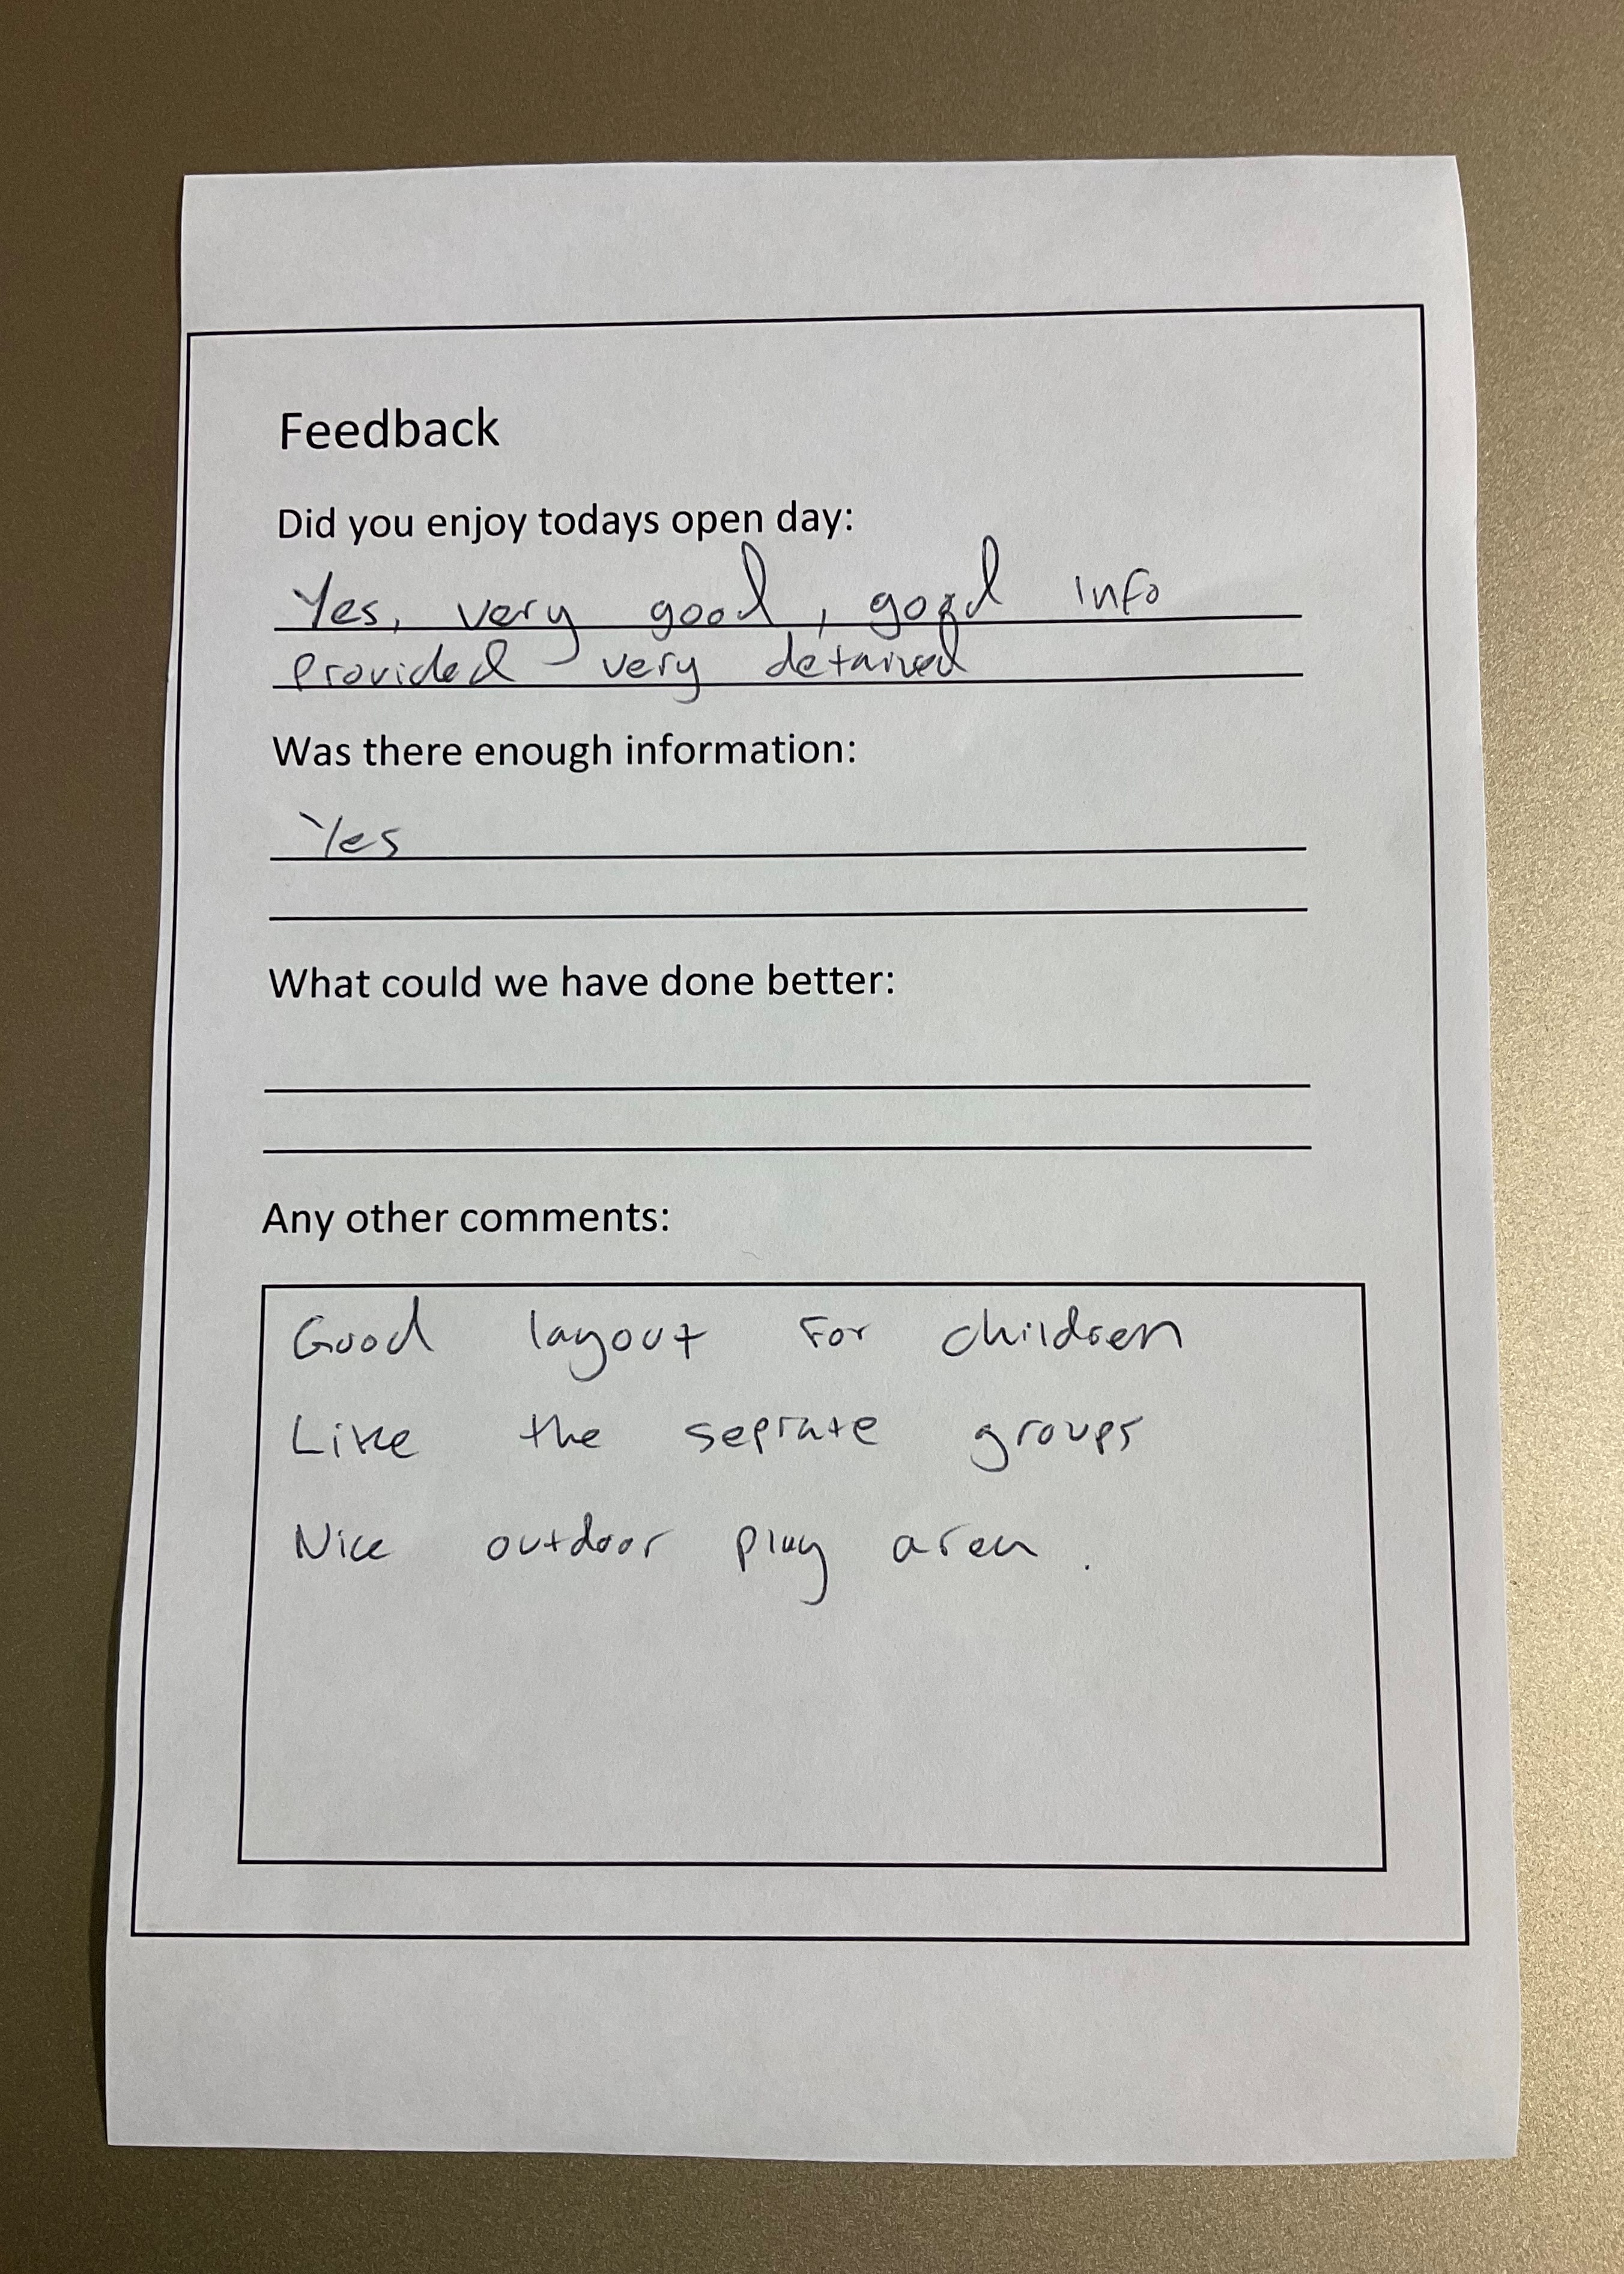 Feedback
Did you enjoy todays open day:
Yes, very good, good info
provided very detailed
Was there enough information:
Yes
What could we have done better:
Any other comments:
Good layout for children
Like the seprate groups
Nice outdoor play area.